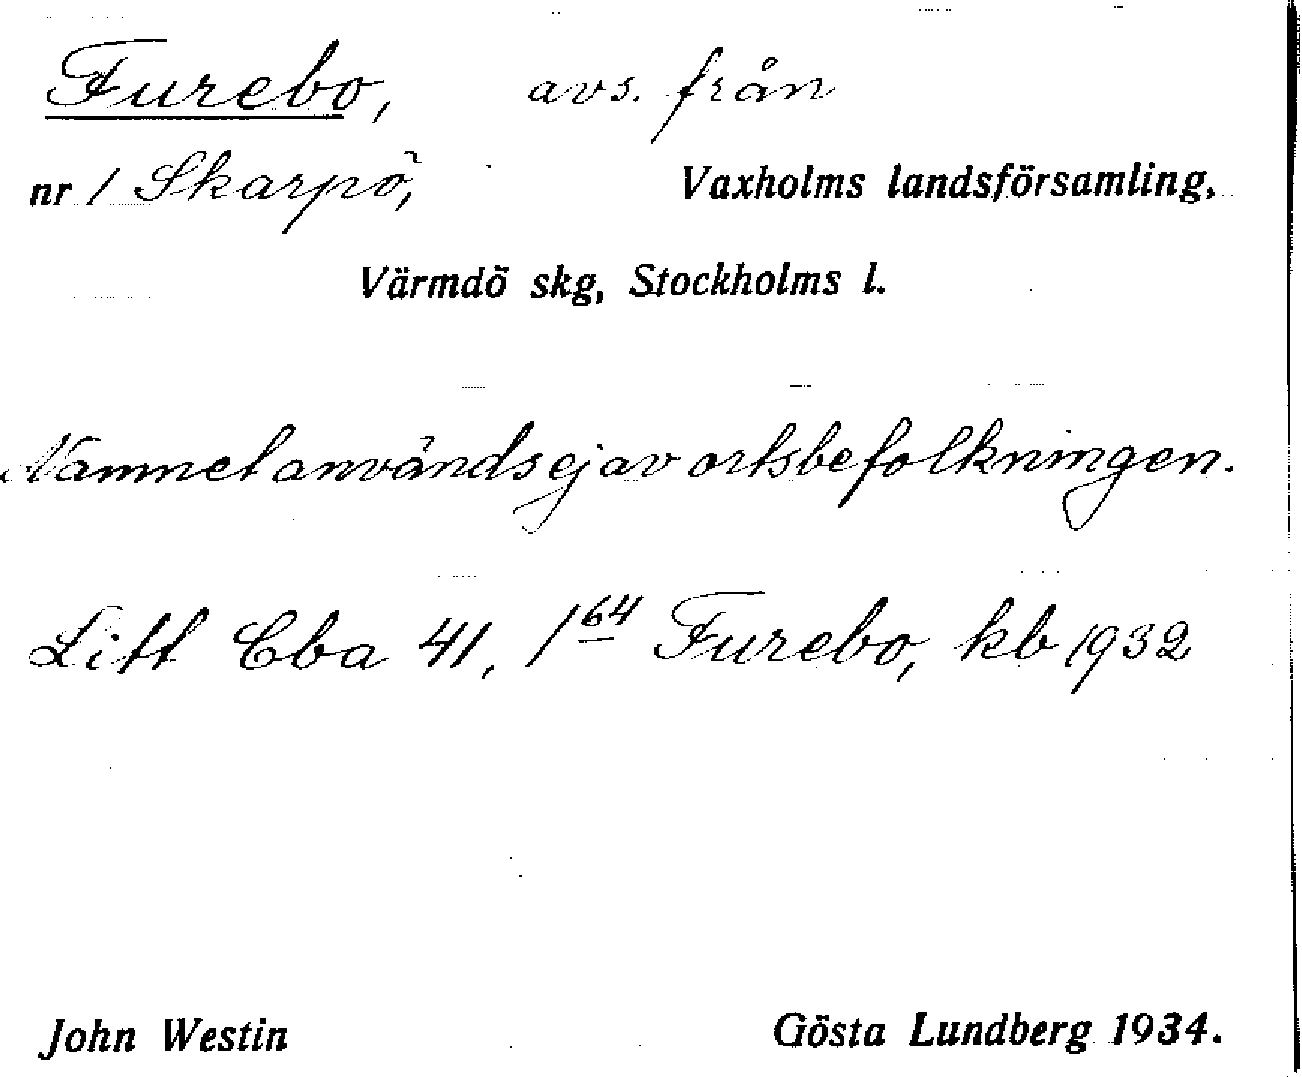 Furebo, avs. från
nr 1 Skarpö, Vaxholms landsförsamling,
Värmdö skg, Stockholms l.
Namnet användsej av ortsbefolkningen.
Litt Cba 41, 1 64 Furebo, kb 1932
John Westin Gösta Lundberg 1934.